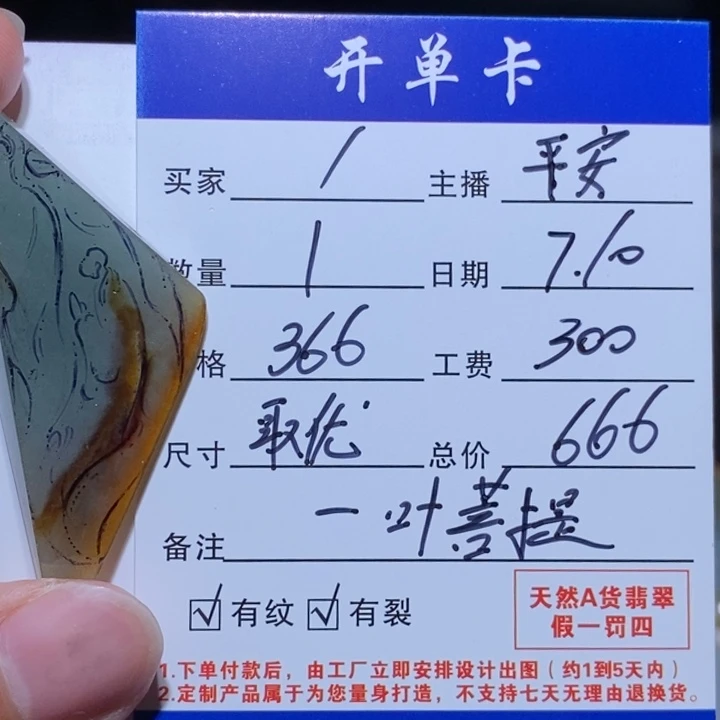 开单卡
买家 1 主播 平安
数量 1 日期 7.10
格 366 工费 300
尺寸 取优 总价 666
备注 一叶菩提
有纹 有裂
天然A货翡翠
假一罚四
1.下单付款后，由工厂立即安排设计出图（约1到5天内）
2.定制产品属于为您量身打造，不支持七天无理由退换货。